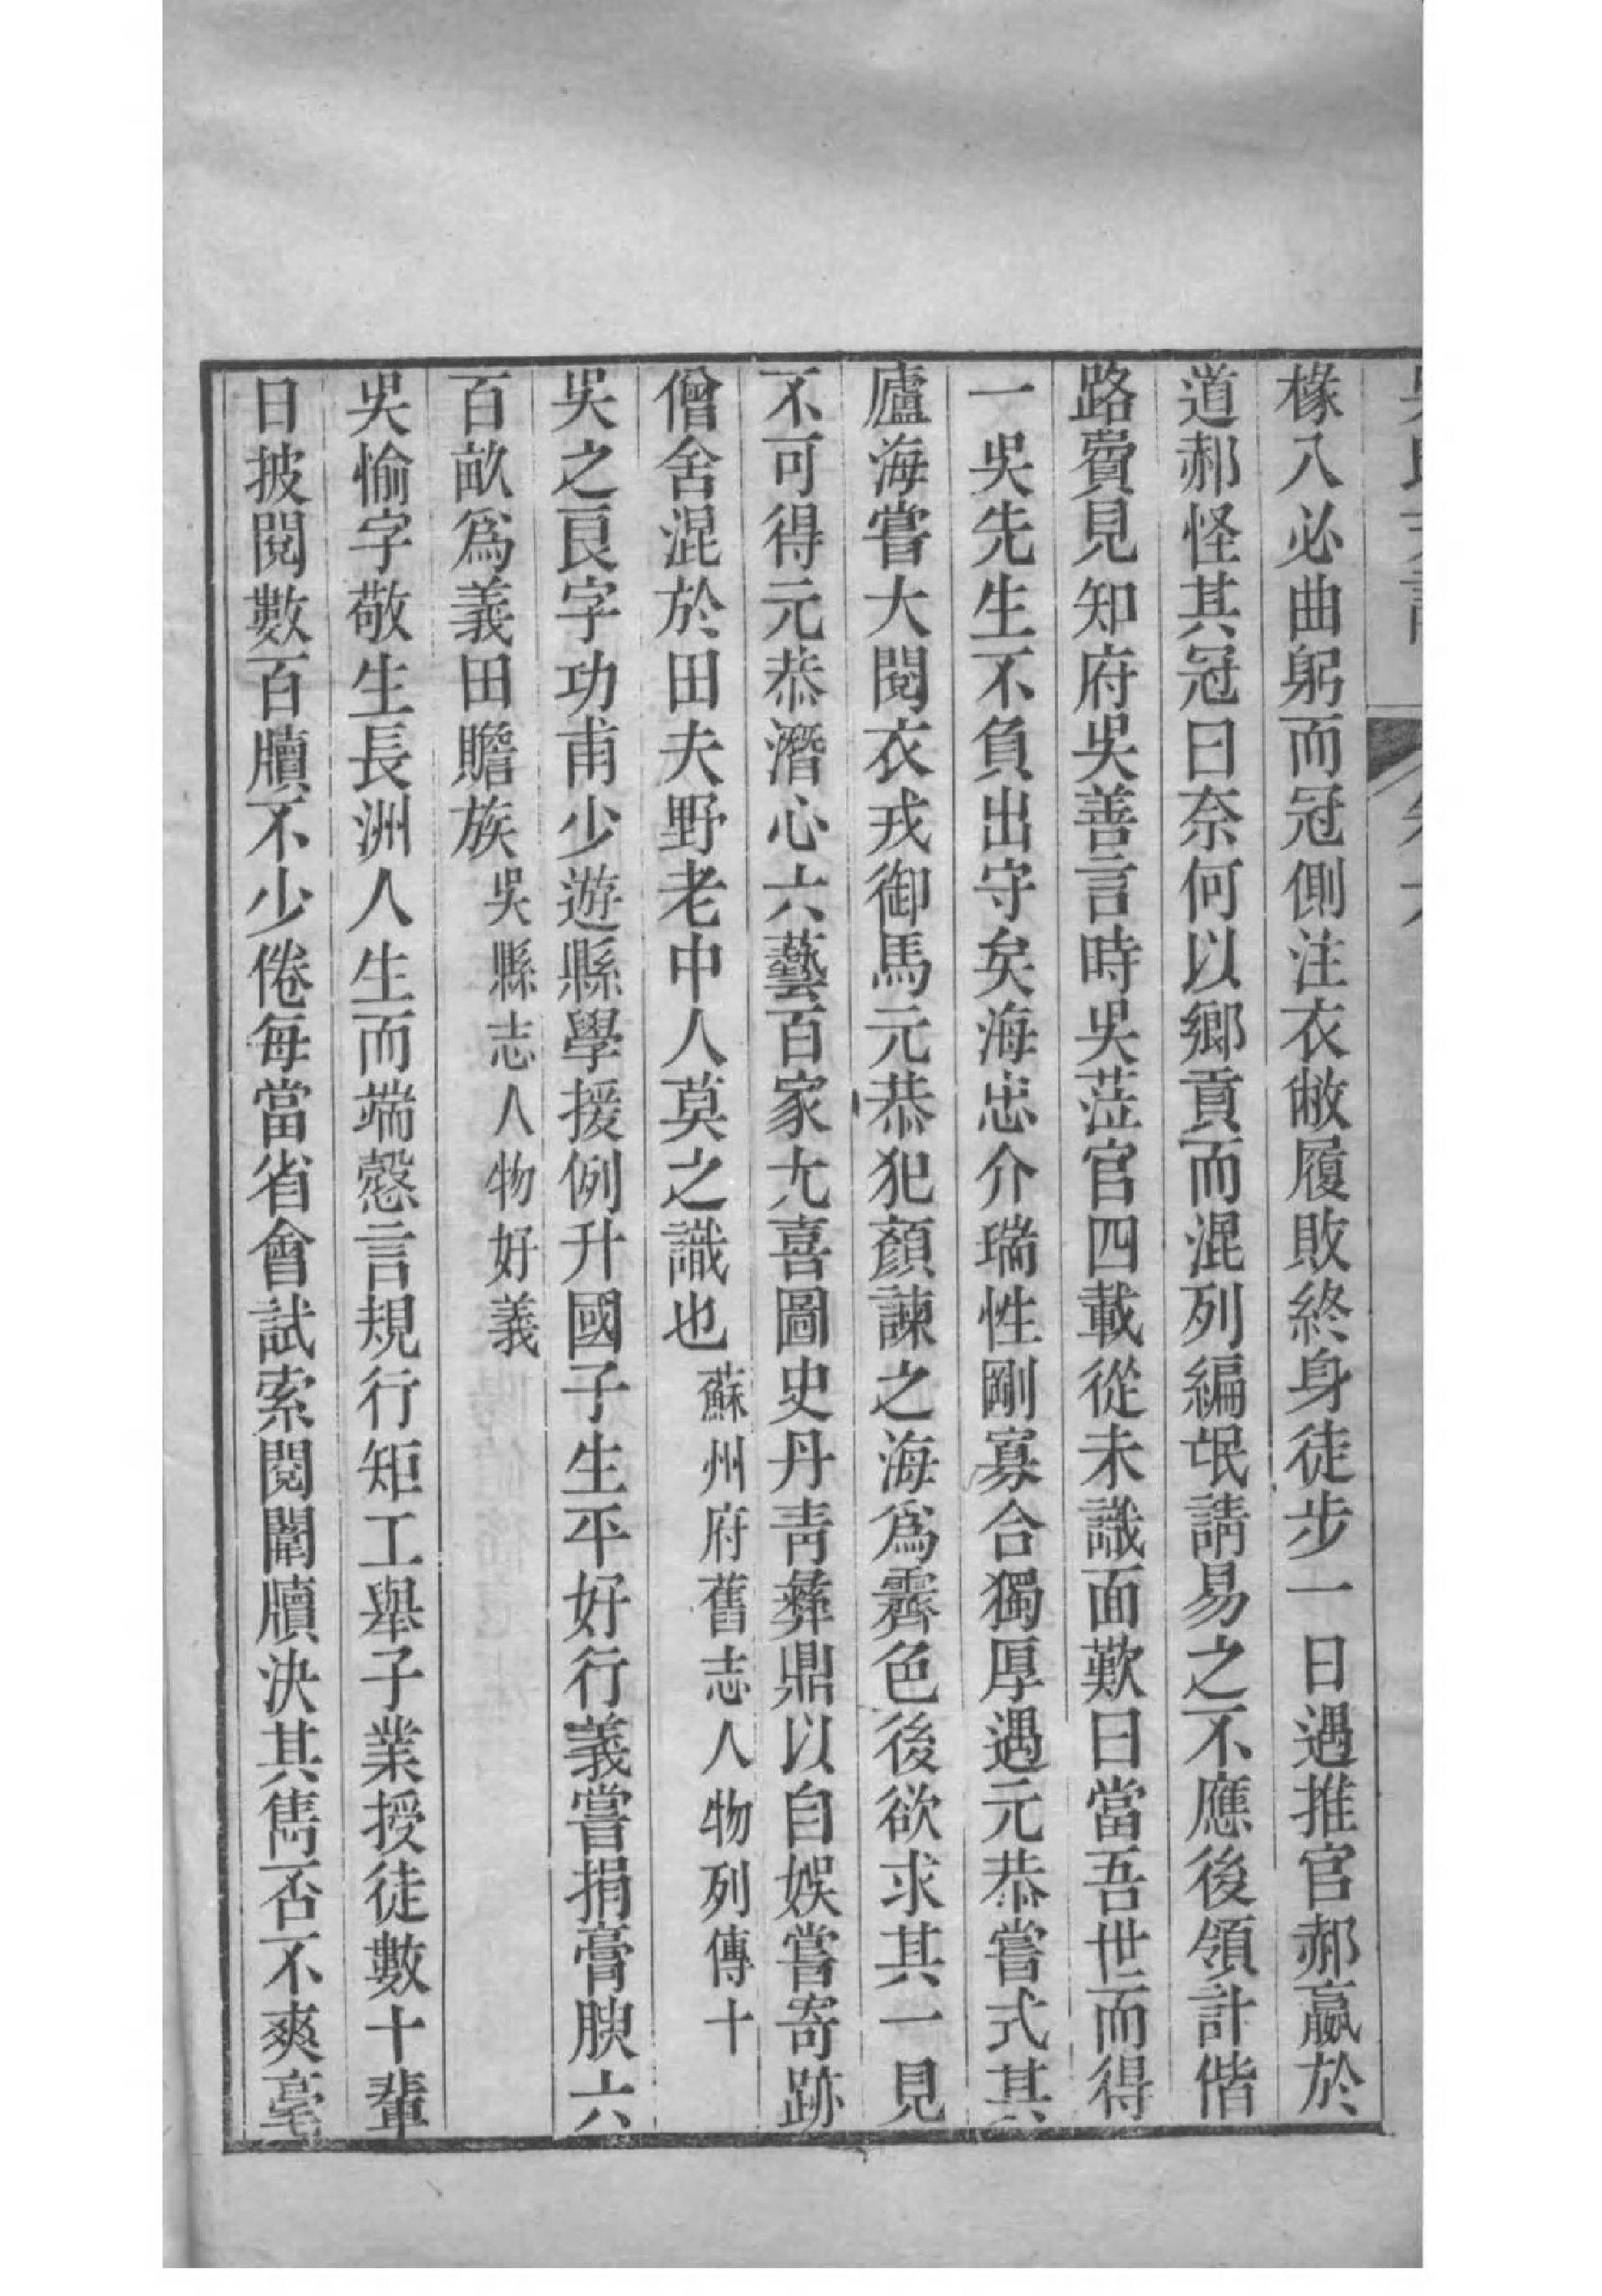 椽入必曲躬而冠側注衣敝履敗終身徒步一日遇推官郝嬴於
道郝怪其冠曰奈何以鄉貢而混列編氓請易之不應後領計偕
路費見知府吳善言時吳蒞官四載從未識面歎曰當吾世而得
一吳先生不負出守矣海忠介瑞性剛寡合獨厚遇元恭嘗式其
廬海嘗大閱衣戎御馬元恭犯顏諫之海爲霽色後欲求其一見
不可得元恭潛心六藝百家尤喜圖史丹靑彝鼎以自娛嘗寄跡
僧舍混於田夫野老中人莫之識也蘇州府舊志人物列傳十
吳之良字功甫少遊縣學援例升國子生平好行義嘗捐膏腴六
百畝爲義田贍族吳縣志人物好義
吳愉字敬生長洲人生而端愨言規行矩工舉子業授徒數十輩
日披閱數百牘不少倦每當省會試索閱闈牘決其雋否不爽毫